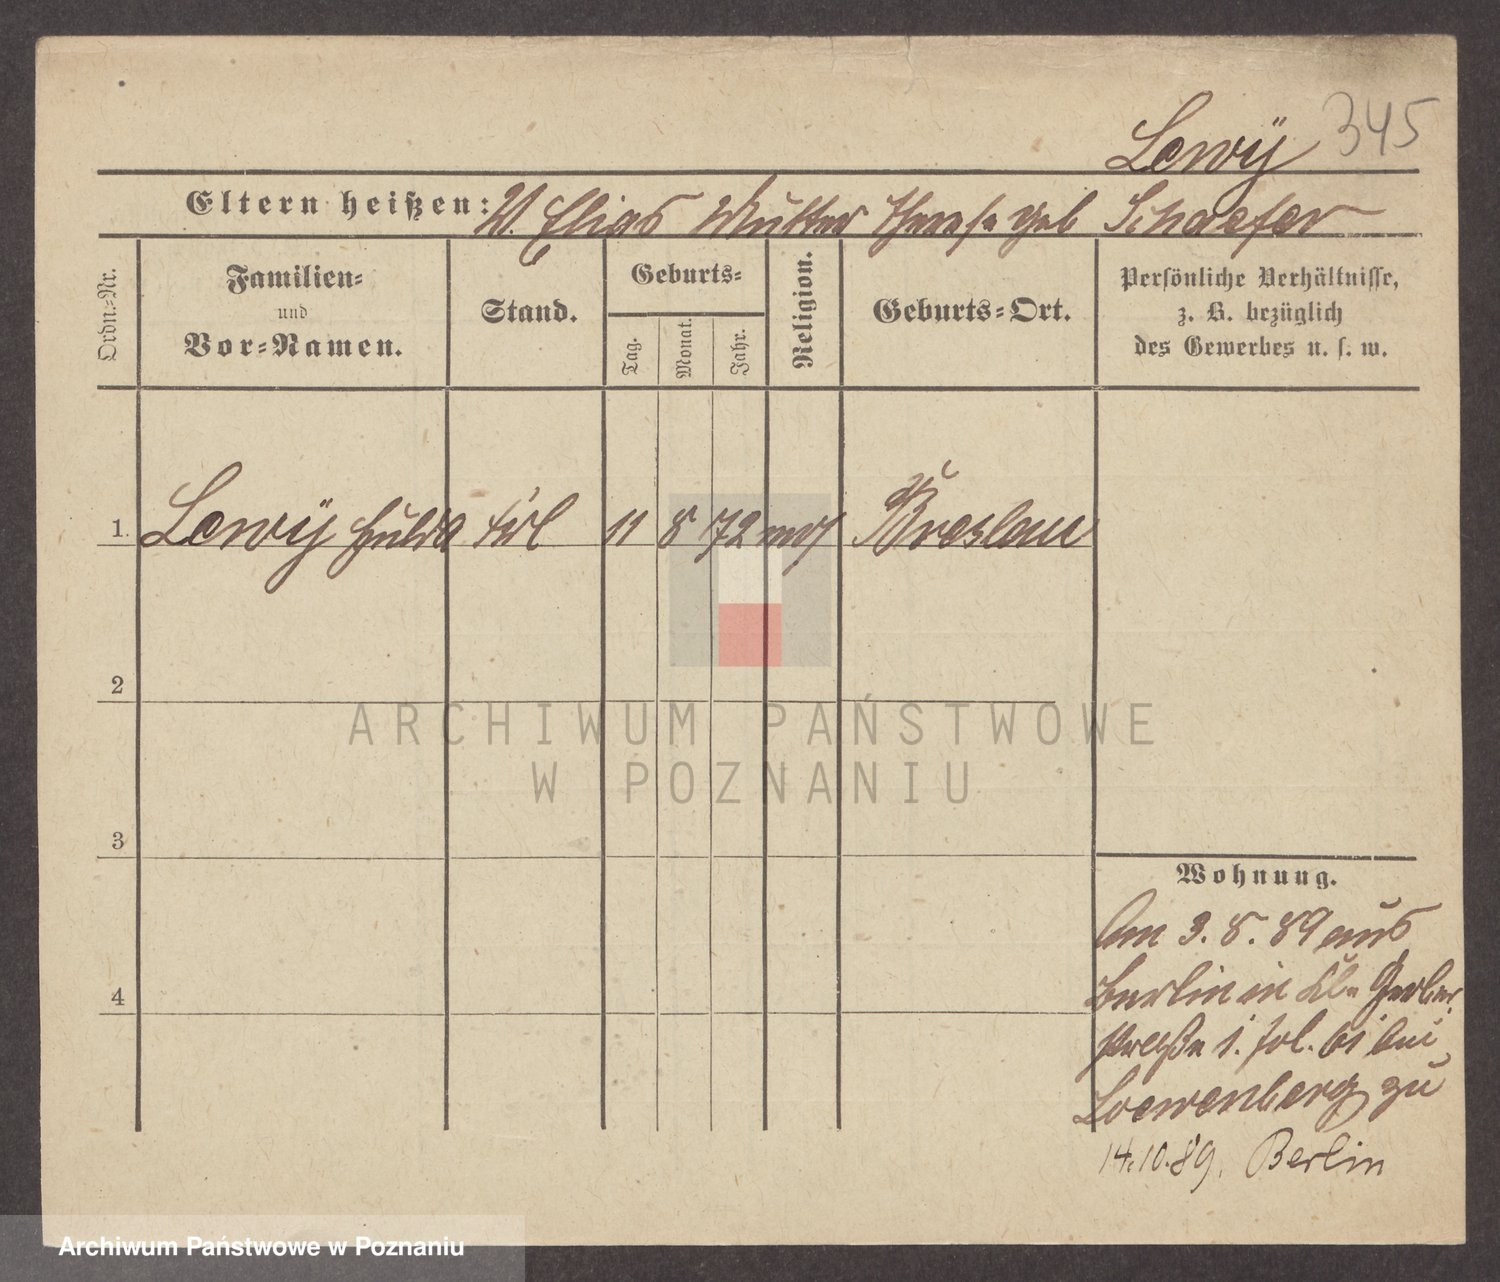 Lewÿ 345
Eltern heißen: V. Elias Mutter Therese geb Schaefer
Ordn.-Nr.
Familien-
und
Vor-Namen.
Stand.
Geburts-
Tag.
Monat.
Jahr.
Religion.
Geburts-Ort.
Persönliche Verhältnisse,
z. B. bezüglich
des Gewerbes u. s. w.
1. Lewÿ Hulda 11 8 72 mos Breslau
2
3
4
Wohnung.
Am 3. 8. 89 aus
Berlin in Kl. Gerber
straße 1. bei
Loewenberg zu
14.10.89. Berlin
ARCHIWUM PAŃSTWOWE
W POZNANIU
Archiwum Państwowe w Poznaniu